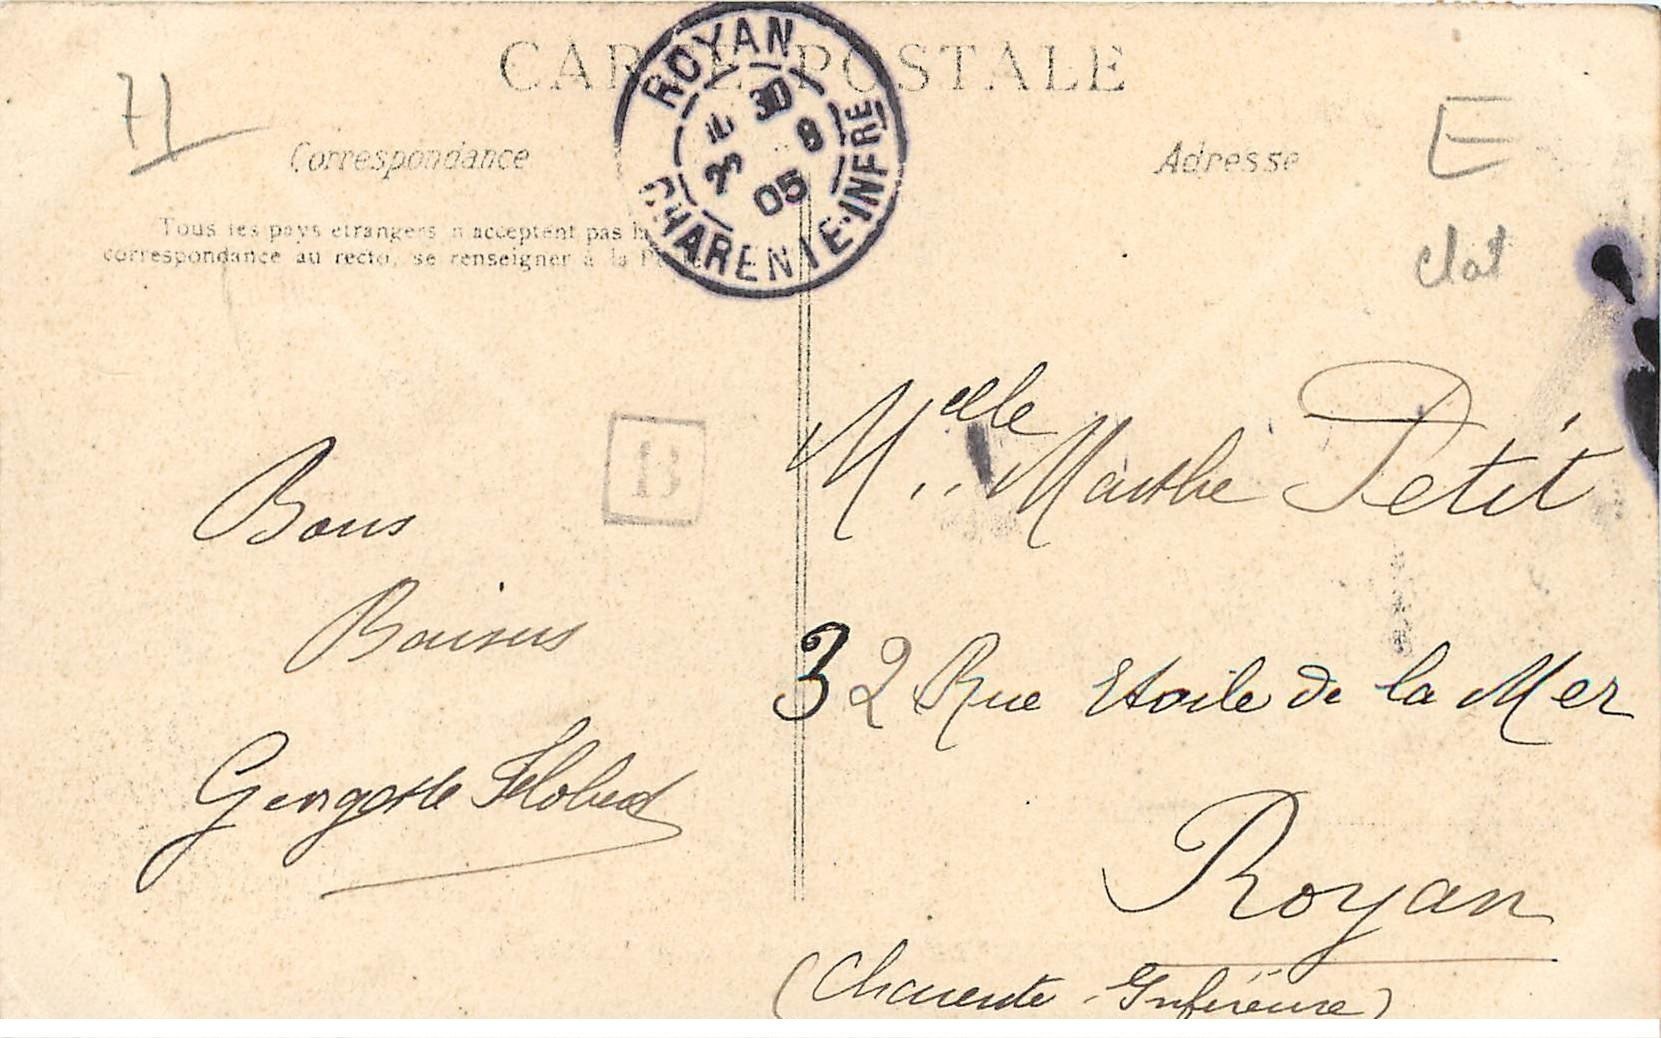 CARTE POSTALE
71
Correspondance
Tous les pays etrangers n acceptent pas la
correspondance au recto, se renseigner à la
ROYAN
30 8
05
CHARENTE-INFRE
Adresse
E
B
Bons
Baisers
Georgette
Melle Marthe Petit
32 Rue Etoile de la Mer
Royan
(Charente-Inférieure)